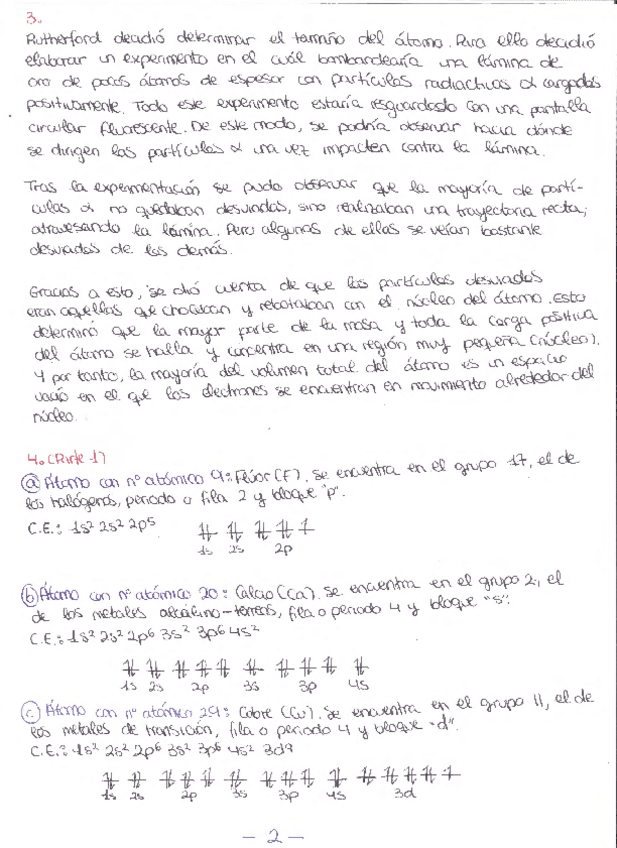 3.
Rutherford decidió determinar el tamaño del átomo. Para ello decidió
elaborar un experimento en el cuál bombardearía una lámina de
oro de pocos átomos de espesor con partículas radiactivas α cargadas
positivamente. Todo este experimento estaría resguardado con una pantalla
circular fluorescente. De este modo, se podría observar hacia dónde
se dirigen las partículas α una vez impacten contra la lámina.
Tras la experimentación se pudo observar que la mayoría de partí-
culas α no quedaban desviadas, sino realizaban una trayectoria recta,
atravesando la lámina. Pero algunas de ellas se veían bastante
desviadas de las demás.
Gracias a esto, se dió cuenta de que las partículas desviadas
eran aquellas que chocaban y rebotaban con el núcleo del átomo. Esto
determinó que la mayor parte de la masa y toda la carga positiva
del átomo se halla y concentra en una región muy pequeña (núcleo).
Y por tanto, la mayoría del volumen total del átomo es un espacio
vacío en el que los electrones se encuentran en movimiento alrededor del
núcleo.
4. (Parte 1)
a) Átomo con nº atómico 9: Flúor (F). Se encuentra en el grupo 17, el de
los halógenos, periodo o fila 2 y bloque "p".
C.E.: 1s² 2s² 2p⁵
1s 2s 2p
b) Átomo con nº atómico 20: Calcio (Ca). Se encuentra en el grupo 2, el
de los metales alcalino-térreos, fila o periodo 4 y bloque "s".
C.E.: 1s² 2s² 2p⁶ 3s² 3p⁶ 4s²
1s 2s 2p 3s 3p 4s
c) Átomo con nº atómico 29: Cobre (Cu). Se encuentra en el grupo 11, el de
los metales de transición, fila o periodo 4 y bloque "d".
C.E.: 1s² 2s² 2p⁶ 3s² 3p⁶ 4s² 3d⁹
1s 2s 2p 3s 3p 4s 3d
- 2 -